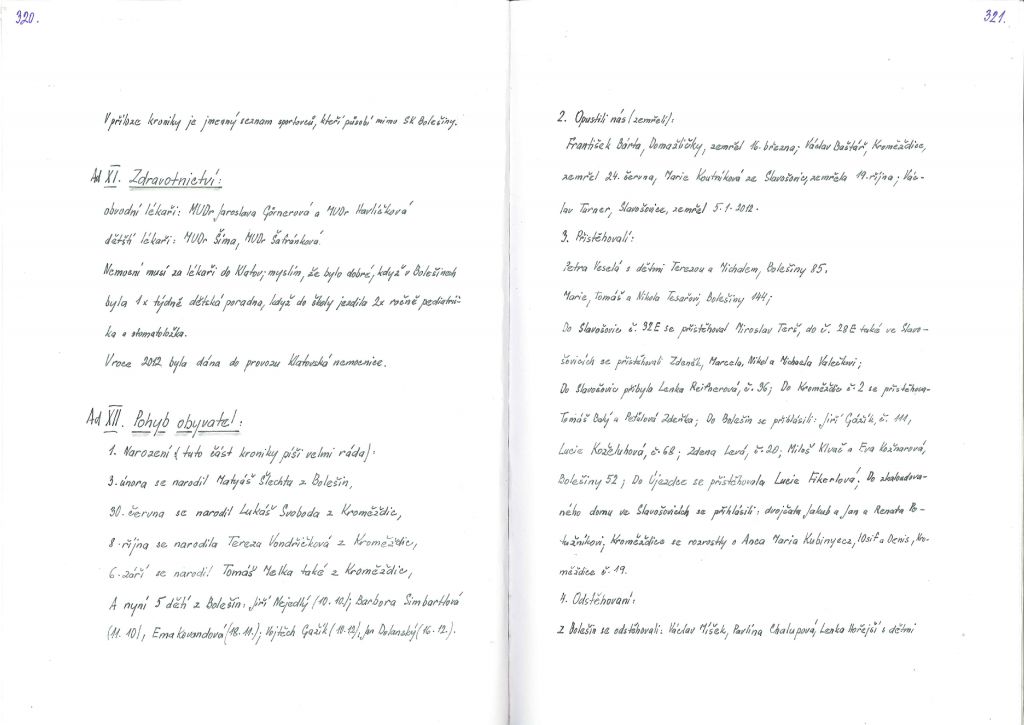 320.
V příloze kroniky je jmenný seznam sportovců, kteří působí mimo SK Bolešiny.
Ad XI. Zdravotnictví:
obvodní lékaři: MUDr Jaroslava Görnerová a MUDr Havlíčková
dětští lékaři: MUDr Šíma, MUDr Šafránková.
Nemocní musí za lékaři do Klatov; myslím, že bylo dobré, když v Bolešinech
byla 1x týdně dětská poradna, když do školy jezdila 2x ročně pediatrič-
ka a stomatoložka.
V roce 2012 byla dána do provozu Klatovská nemocnice.
Ad XII. Pohyb obyvatel:
1. Narození (tuto část kroniky píši velmi ráda):
3. února se narodil Matyáš Šlechta z Bolešin,
30. června se narodil Lukáš Svoboda z Kroměždic,
8. října se narodila Tereza Vondřičková z Kroměždic,
6. září se narodil Tomáš Melka také z Kroměždic,
A nyní 5 dětí z Bolešin: Jiří Nejedlý (10.10); Barbora Simbartlová
(11.10), Ema Kovandová (18.11.); Vojtěch Gažík (10.12), Jan Dolanský (16.12.).
321.
2. Opustili nás (zemřeli):
František Bárta, Domažličky, zemřel 16. března; Václav Baštář, Kroměždice,
zemřel 24. června, Marie Koutníková ze Slavošovic, zemřela 19. října; Vác-
lav Turner, Slavošovice, zemřel 5.1.2012.
3. Přistěhovali:
Petra Veselá s dětmi Terezou a Michalem, Bolešiny 85.
Marie, Tomáš a Nikola Tesařovi, Bolešiny 144;
Do Slavošovic č. 32E se přistěhoval Miroslav Terš, do č. 28E také ve Slavo-
šovicích se přistěhovali Zdeněk, Marcela, Nikol a Michaela Valečkovi;
Do Slavošovic přibyla Lenka Reifnerová, č. 36; Do Kroměždic č. 2 se přistěhova-
Tomáš Bálý a Zdeňka; Do Bolešin se přihlásili: Jiří Gažík, č. 111,
Lucie Koželuhová, č. 68; Zdena Levá, č. 20; Miloš Klvač a Eva Kožnarová,
Bolešiny 52; Do Újezdce se přistěhovala Lucie Fikerlová. Do zbudova-
ného domu ve Slavošovicích se přihlásili: dvojčata Jakub a Jan a Renata Po-
tužníkovi, Kroměždice se rozrostly o Anca Maria Kubinyecz, Iosif a Denis, Kro-
měždice č. 19.
4. Odstěhovaní:
Z Bolešin se odstěhovali: Václav Míšek, Pavlína Chalupová, Lenka Hořejší s dětmi